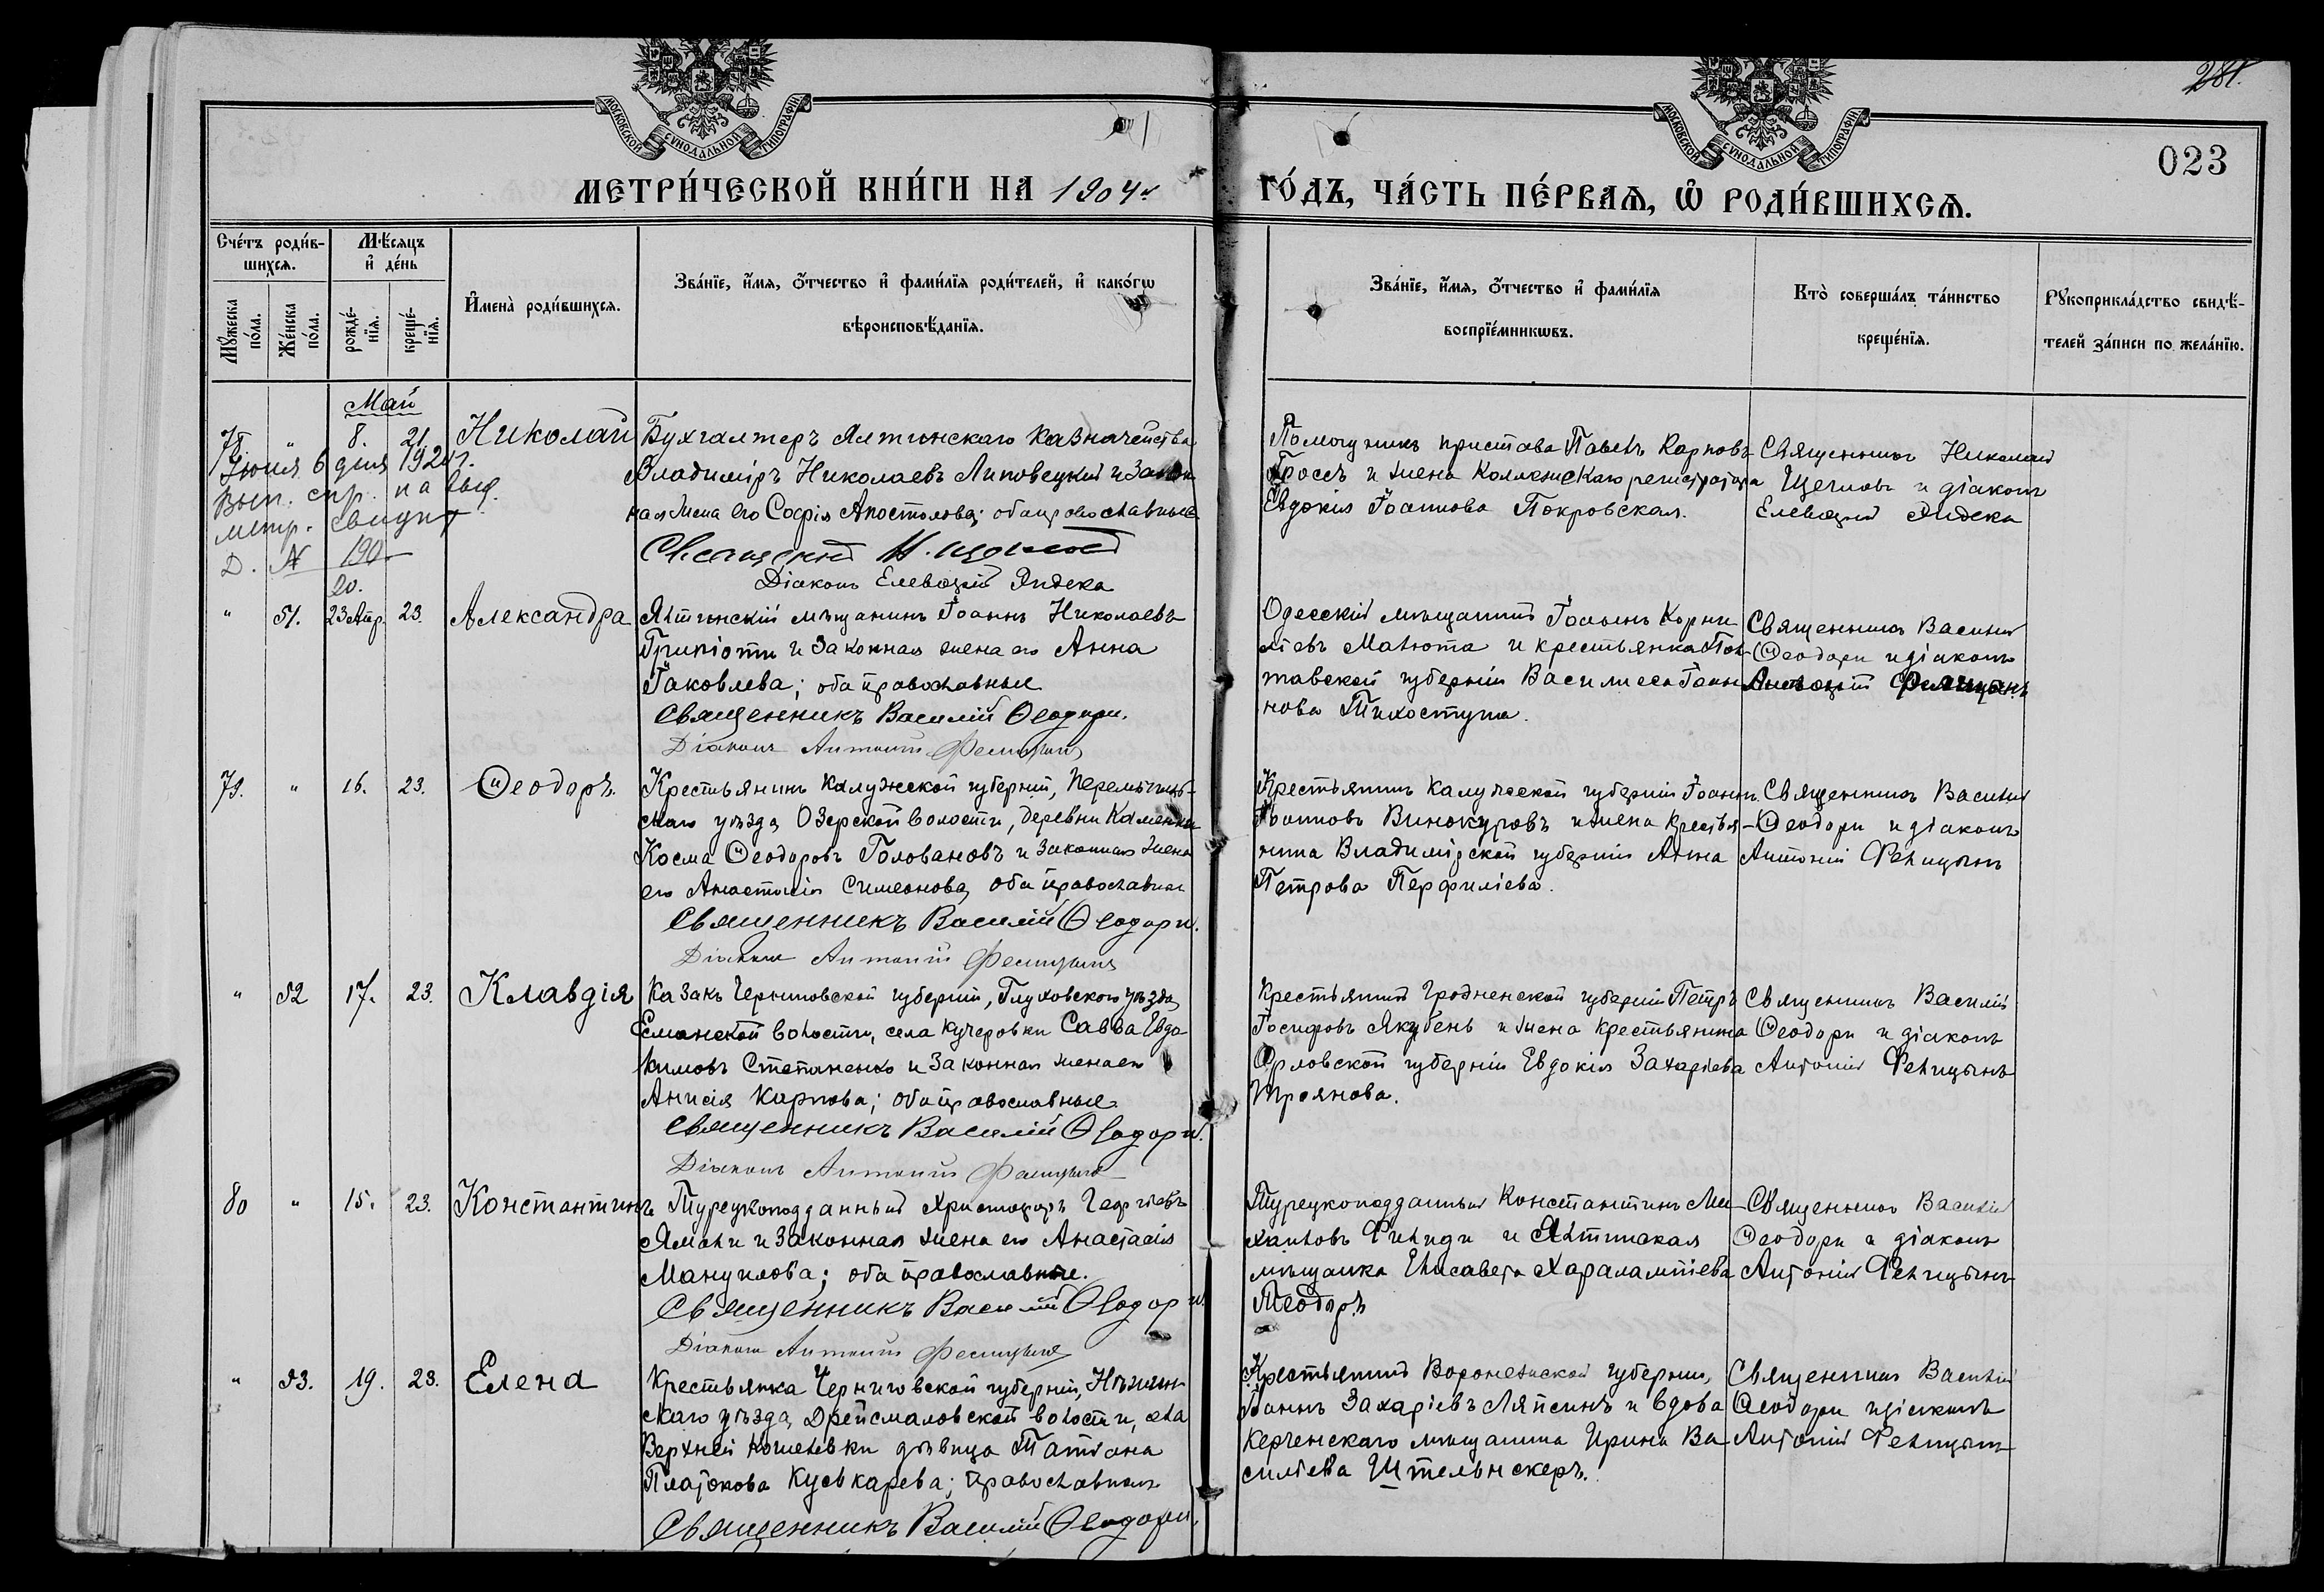 МОСКОВСКОЙ СУНОДАЛЬНОЙ ТИПОГРАФІИ
МОСКОВСКОЙ СУНОДАЛЬНОЙ ТИПОГРАФІИ
281.
023
МЕТРИ́ЧЕСКОЙ КНИ́ГИ НА 1904 г.
ГО́ДЪ, ЧА́СТЬ ПЕ́РВАѦ, Ѽ РОДИ́ВШИХСѦ.
Сче́тъ роди́в-
шихсѧ.
Мѣ́сѧцъ
и҆ де́нь
Мꙋ́жеска по́ла.
Же́нска по́ла.
рожде́-
нїѧ.
креще́-
нїѧ.
И҆мена̀ роди́вшихсѧ.
Зва́нїе, и҆́мѧ, ѻ҆́тчество и҆ фами́лїѧ роди́телей, и҆ како́гѡ
вѣроисповѣ́данїѧ.
Зва́нїе, и҆́мѧ, ѻ҆́тчество и҆ фами́лїѧ
воспрїе́мникѡвъ.
Кто̀ соверша́лъ та́инство
креще́нїѧ.
Рꙋкоприкла́дство свидѣ́-
телей за́писи по жела́нїю.
Май
78. " 8. 21. Николай
Іюня 6 дня 192 г.
вып. спр. на выд.
метр.
Д. N 190
20.
Бухгалтеръ Ялтинскаго Казначейства
Владиміръ Николаевъ Липовецкий и закон
ная жена его Софія Апостолова; оба православные
Діаконъ Елевѳерій Яндека
Помощникъ пристава Павелъ Карповъ
Гроссъ и жена Коллежскаго регистратора
Евдокія Іоаннова Покровская.
Священникъ Николай
Щегловъ и діаконъ
Елевѳерій Яндека
" 51. 23 Апр. 23. Александра
Ялтинскій мѣщанинъ Іоаннъ Николаевъ
и законная жена его Анна
Іаковлева; оба православные
Священникъ Василій Ѳеодори.
Діаконъ Антоній Фелицынъ
Одесскій мѣщанинъ Іоаннъ Корни
ліевъ Малюта и крестьянка Пол-
тавской губерніи Василисса Іоан
нова Тихоступа.
Священникъ Василій
Ѳеодори и діаконъ
Антоній Фелицынъ
79. " 16. 23. Ѳеодоръ.
Крестьянинъ Калужской губерніи, Перемышль-
скаго уѣзда, Озерской волости, деревни Каменки
Косма Ѳеодоровъ Головановъ и законная жена
его Анастасія Симеонова, оба православные
Священникъ Василій Ѳеодори.
Діаконъ Антоній Фелицынъ
Крестьянинъ Калужской губерніи Іоаннъ
Іоанновъ Винокуровъ и жена крестья-
нина Владимірской губерніи Анна
Петрова Перфиліева.
Священникъ Василій
Ѳеодори и діаконъ
Антоній Фелицынъ
" 52 17. 23. Клавдія
Казакъ Черниговской губерніи, Глуховскаго уѣзда,
Есманской волости, села Кучеровки Савва Евдо
кимовъ Степаненко и законная жена его
Анисія Карпова; оба православные.
Священникъ Василій Ѳеодори.
Діаконъ Антоній Фелицынъ
Крестьянинъ Гродненской губерніи Петръ
Іосифовъ Якубень и жена крестьянина
Орловской губерніи Евдокія Захаріева
Троянова.
Священникъ Василій
Ѳеодори и діаконъ
Антоній Фелицынъ
80 " 15. 23. Константинъ
Турецкоподданный Христофоръ Георгіевъ
Ямали и законная жена его Анастасія
Мануилова; оба православные.
Священникъ Василій Ѳеодори.
Діаконъ Антоній Фелицынъ
Турецкоподданный Константинъ Ми
хаиловъ Филиди и Ялтинская
мѣщанка Елисавета Харалампіева
Теодоръ
Священникъ Василій
Ѳеодори и діаконъ
Антоній Фелицынъ
" 53. 19. 23. Елена
Крестьянка Черниговской губерніи, Нѣжин-
скаго уѣзда, Дрейсмаловской волости, села
Верхней Кошелевки дѣвица Татіана
Платонова Куськарева; православная
Священникъ Василій Ѳеодори.
Крестьянинъ Воронежской губерніи,
Іоаннъ Захаріевъ Ляпсинъ и вдова
Керченскаго мѣщанина Ирина Ва
силіева Штельнскеръ.
Священникъ Василій
Ѳеодори и діаконъ
Антоній Фелицынъ